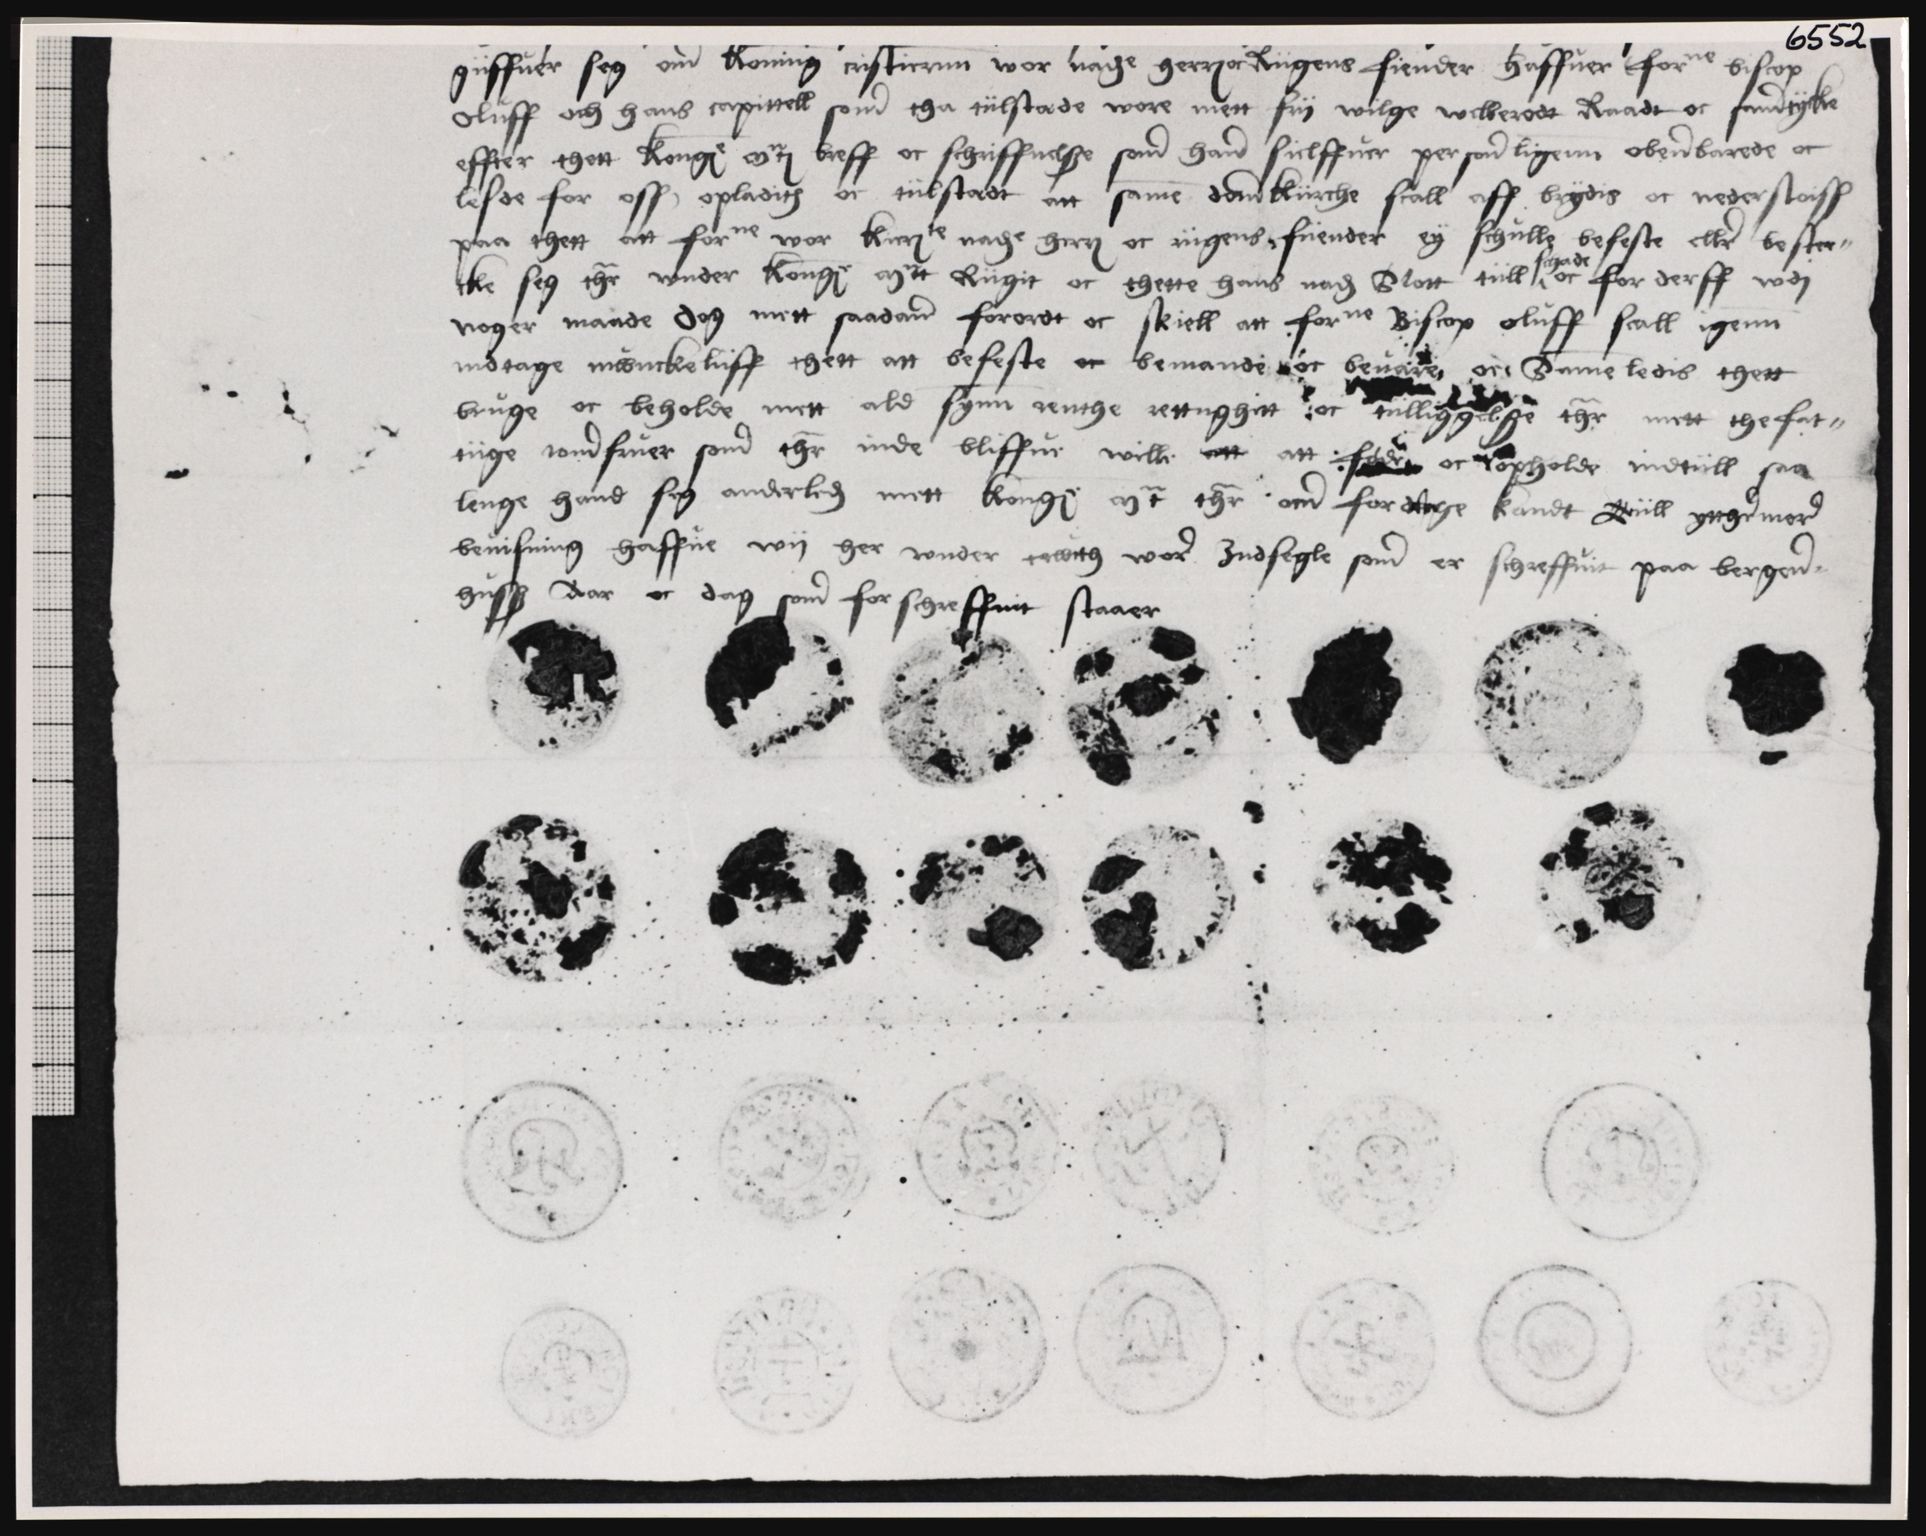 6552
giiffuer seg om koning cristiernn wor nadge herr oc Riigens fiender Haffuer forne biscop
Oluff och hans capittell som tha tiilstade wore mett frij wilge welberodt Raadt oc samtycke
effter thett kong mtz breff oc schriffuelsze som hand sielffuer personligenn obenbarede oc
lesde for oss opladith oc tiilstadt att same domkiirche scall aff brydis oc nederslaiss
paa thett att forne wor kieriste nadge herr oc riigens fiiender ey schulle befeste eller bester-
cke seg ther wnder kong matt Riigit oc thette hans nad Slott tiill schade oc forderff wdj
noger maade Dog mett saadann forordt oc skiell att forne Biscop oluff scall igenn
indtage munckeliiff thett att befeste oc bemande oc beuare oc Sameledis thett
bruge oc beholde mett ald synn renthe rettughitt oc tiilliggelsze ther mett the fat-
tiige iomfruer som ther inde bliffue wille att føde oc opholde indtiill saa
lenge hand seg anderledis mett kong mat ther om fordrage kandt Tiill ytthermere
beuisning haffue wij her wnder tructh wore Indsegle som er schreffuit paa bergen-
huss Aar oc dag som forschreffuit staaer